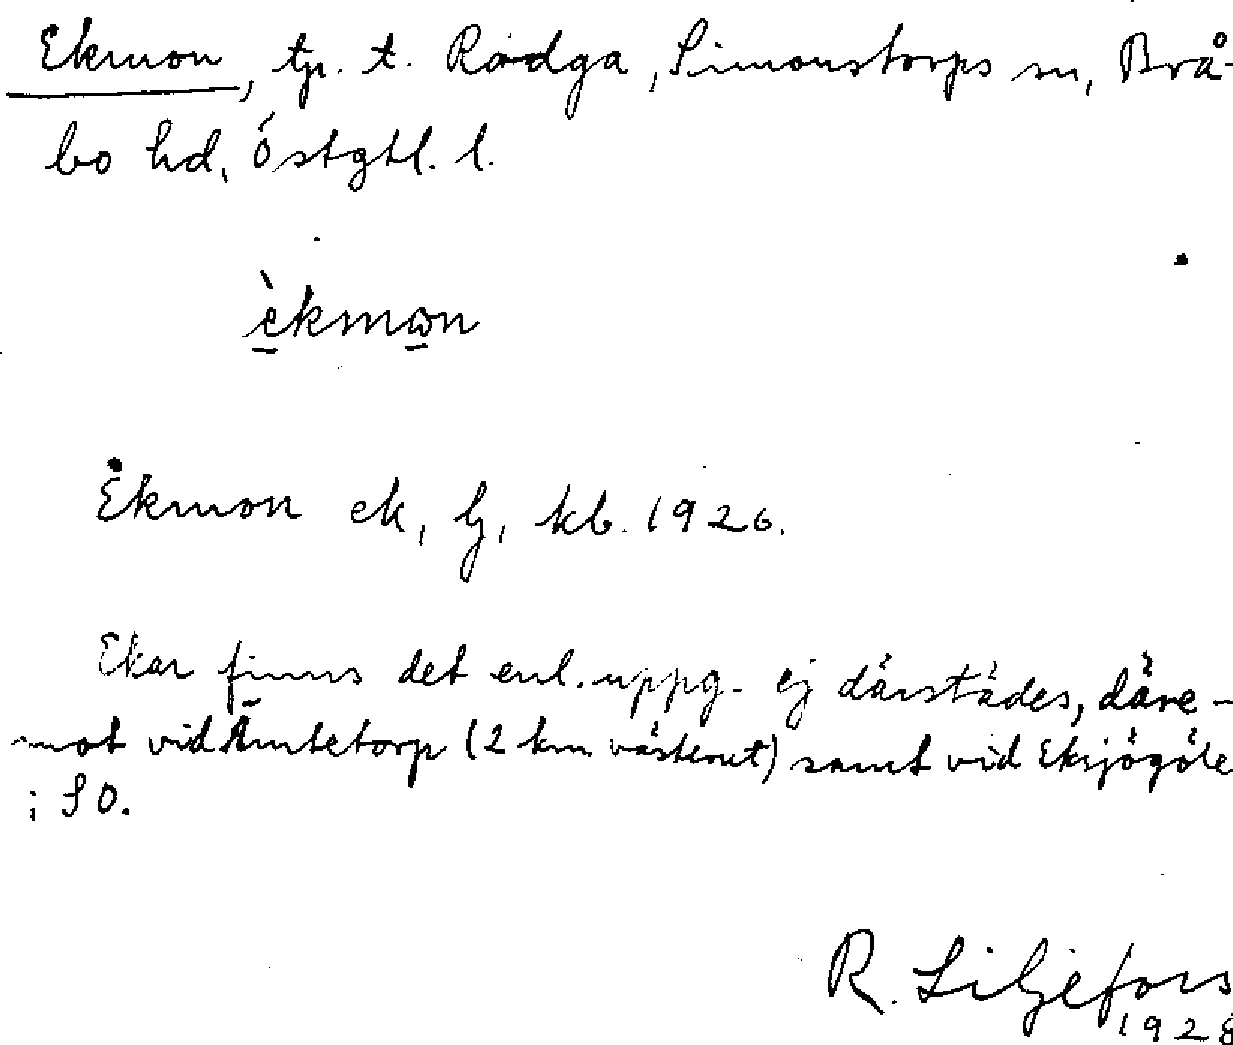 Ekmon, tp. t. Rodga, Simonstorps sn, Brå-
bo hd, Östgtl. l.
èkmωn
Ekmon ek, lj, kb. 1926.
Ekar finns det enl. uppg. ej därstädes, däre-
mot vid Ämtetorp (2 km västerut) samt vid Eksjögöle
i SO.
R. Liljefors
1928